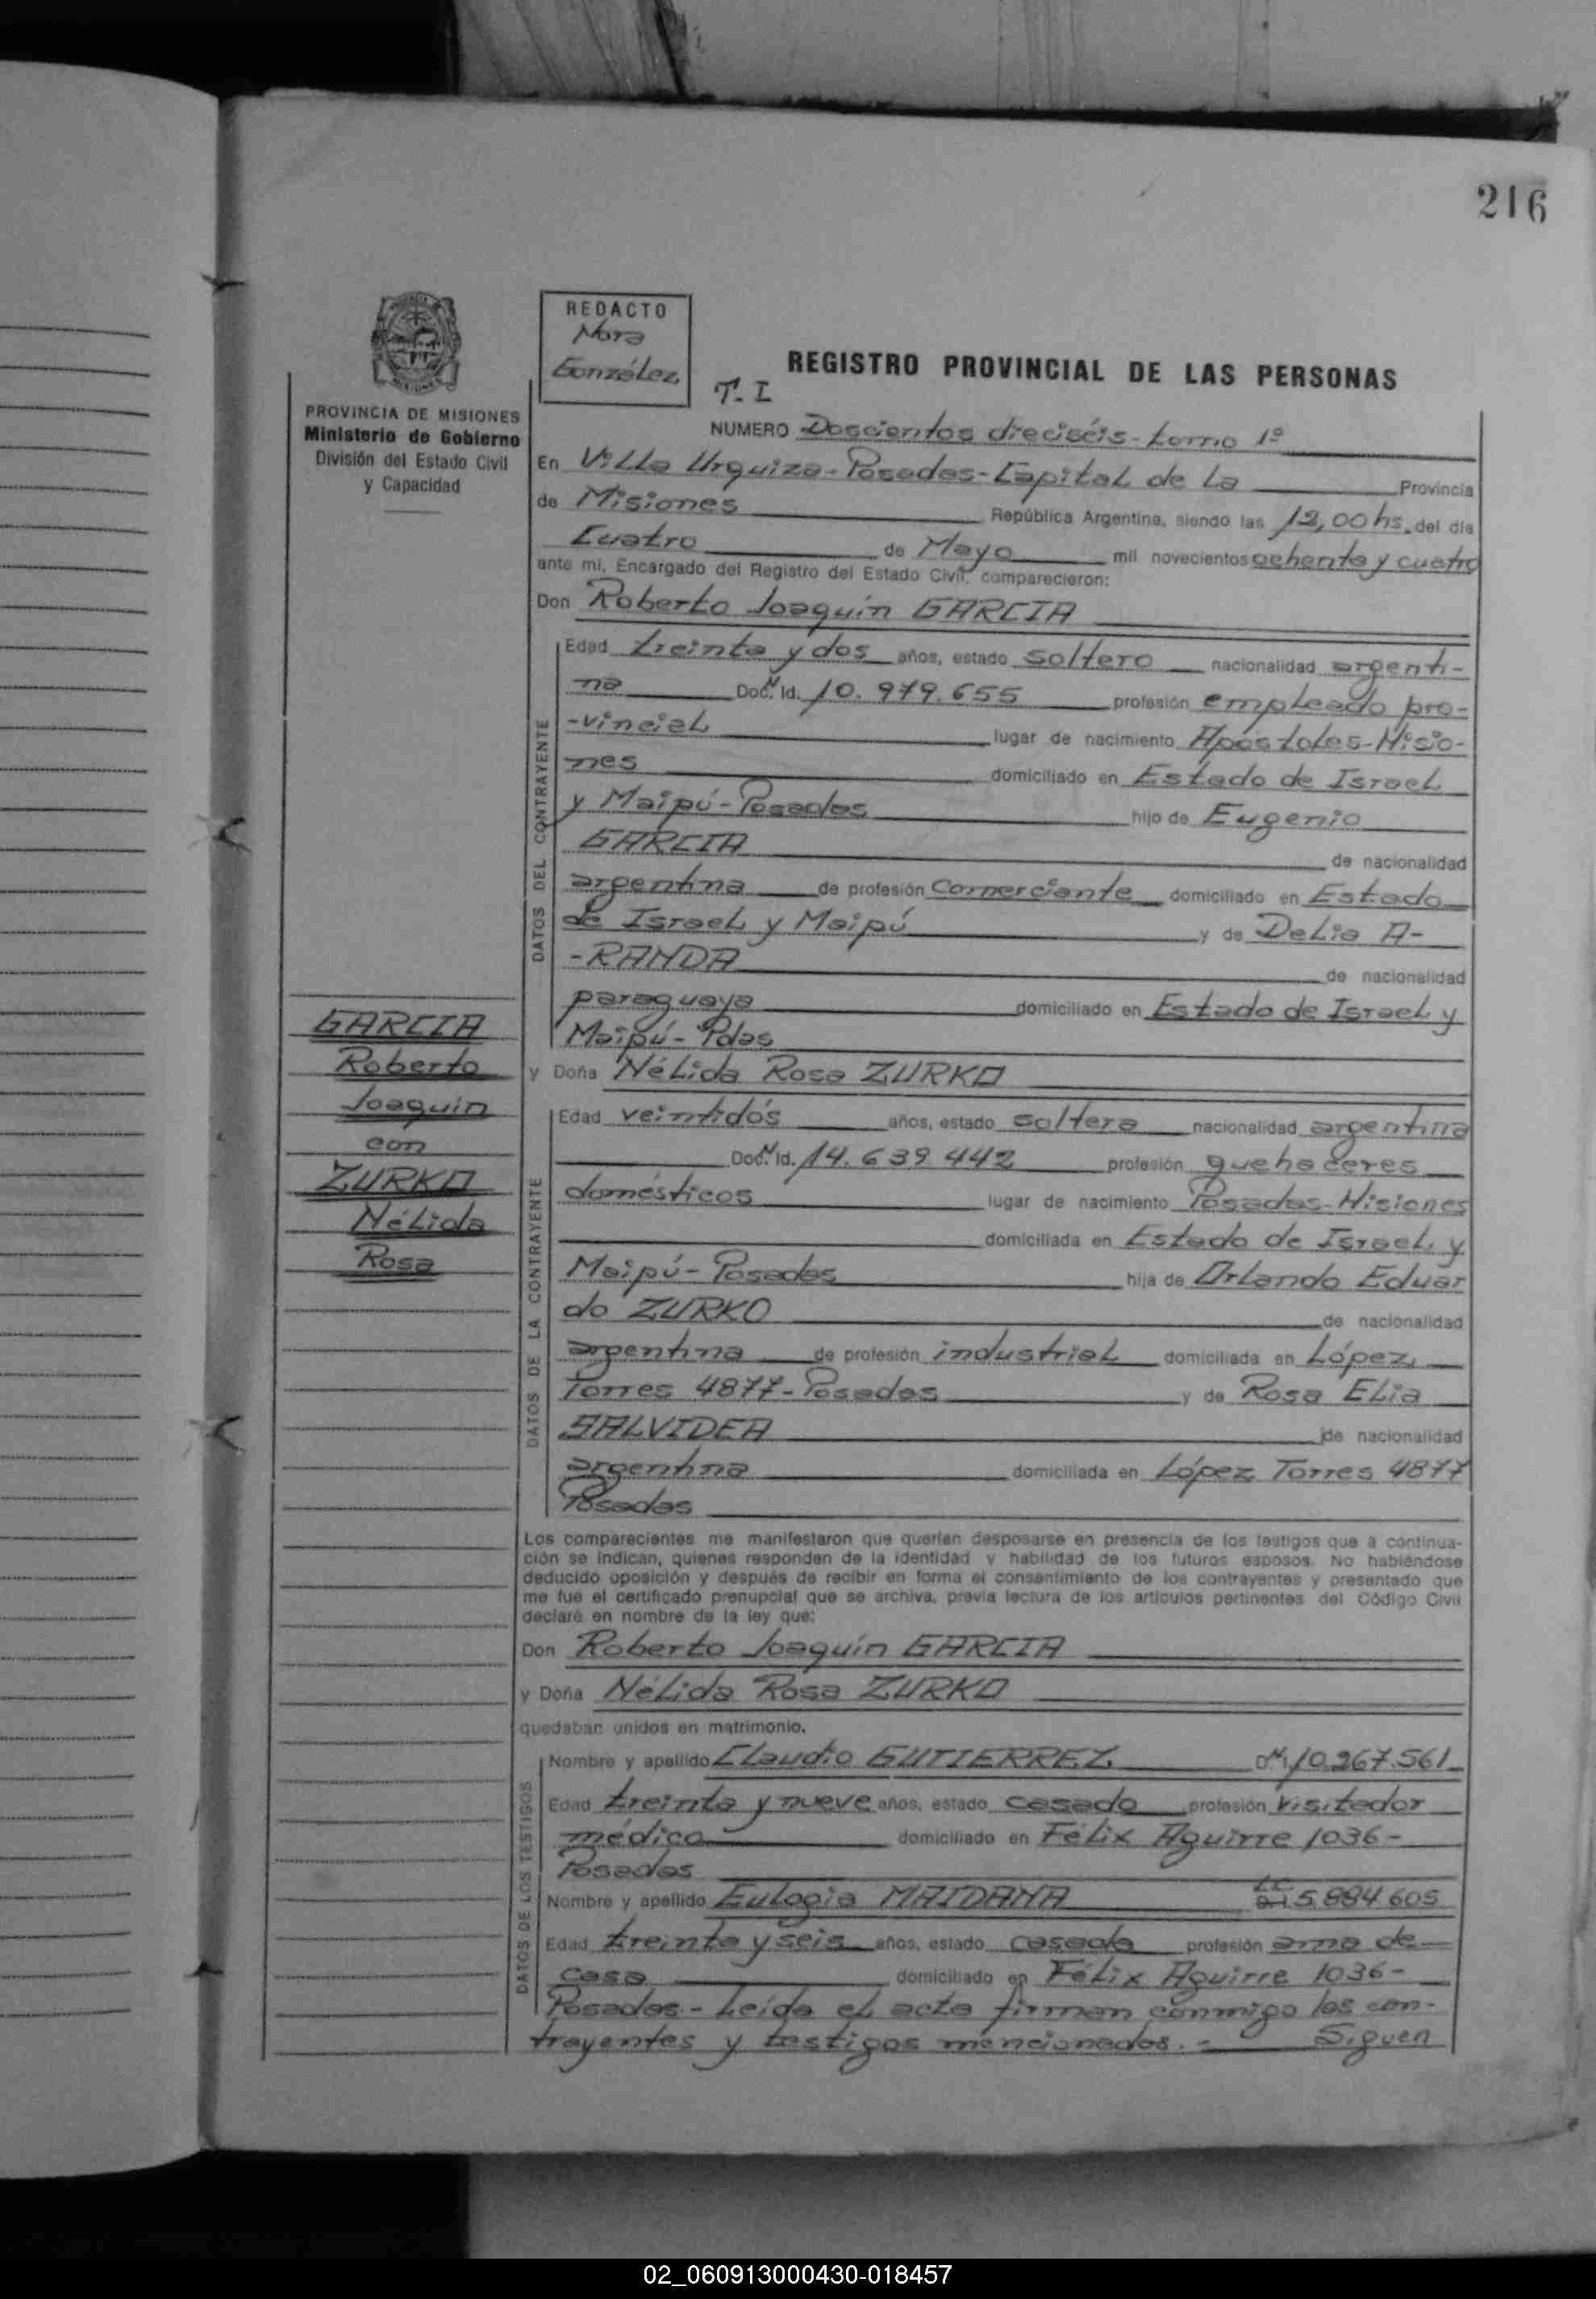 216
REDACTO
Nora
González
PROVINCIA DE MISIONES
Ministerio de Gobierno
División del Estado Civil
y Capacidad
REGISTRO PROVINCIAL DE LAS PERSONAS
T. I
NUMERO Doscientos dieciséis - tomo 1º
En Villa Urquiza - Posadas - Capital de La Provincia
de Misiones República Argentina, siendo las 12,00 hs. del día
Cuatro de Mayo mil novecientos ochenta y cuatro
ante mí, Encargado del Registro del Estado Civil, comparecieron:
Don Roberto Joaquín GARCIA
DATOS DEL CONTRAYENTE
Edad treinta y dos años, estado soltero nacionalidad argenti-
na Doc. Id. 10.979.655 profesión empleado pro-
-vincial lugar de nacimiento Apóstoles-Misio-
nes domiciliado en Estado de Israel
y Maipú - Posadas hijo de Eugenio
GARCIA de nacionalidad
argentina de profesión Comerciante domiciliado en Estado
de Israel y Maipú y de Delia A-
-RANDA de nacionalidad
paraguaya domiciliado en Estado de Israel y
Maipú - Pdas
y Doña Nélida Rosa ZURKO
GARCIA
Roberto
Joaquin
con
ZURKO
Nélida
Rosa
DATOS DE LA CONTRAYENTE
Edad veintidós años, estado soltera nacionalidad argentina
Doc. Id. 14.639.442 profesión quehaceres
domésticos lugar de nacimiento Posadas-Misiones
domiciliada en Estado de Israel y
Maipú - Posadas hija de Orlando Eduar
do ZURKO de nacionalidad
argentina de profesión industrial domiciliada en López
Torres 4877 - Posadas y de Rosa Elia
SALVIDEA de nacionalidad
argentina domiciliada en López Torres 4877
Posadas
Los comparecientes me manifestaron que querían desposarse en presencia de los testigos que a continua-
ción se indican, quienes responden de la identidad y habilidad de los futuros esposos. No habiéndose
deducido oposición y después de recibir en forma el consentimiento de los contrayentes y presentado que
me fue el certificado prenupcial que se archiva, previa lectura de los artículos pertinentes del Código Civil
declaré en nombre de la ley que:
Don Roberto Joaquín GARCIA
y Doña Nélida Rosa ZURKO
quedaban unidos en matrimonio.
DATOS DE LOS TESTIGOS
Nombre y apellido Claudio GUTIERREZ 10.267.561
Edad treinta y nueve años, estado casado profesión Visitador
médico domiciliado en Félix Aguirre 1036 -
Posadas
Nombre y apellido Eulogia MAIDANA LC 5.884.605
Edad treinta y seis años, estado casada profesión ama de
casa domiciliado en Félix Aguirre 1036 -
Posadas - Leída el acta firman conmigo los con-
trayentes y testigos mencionados. - Siguen
02_060913000430-018457